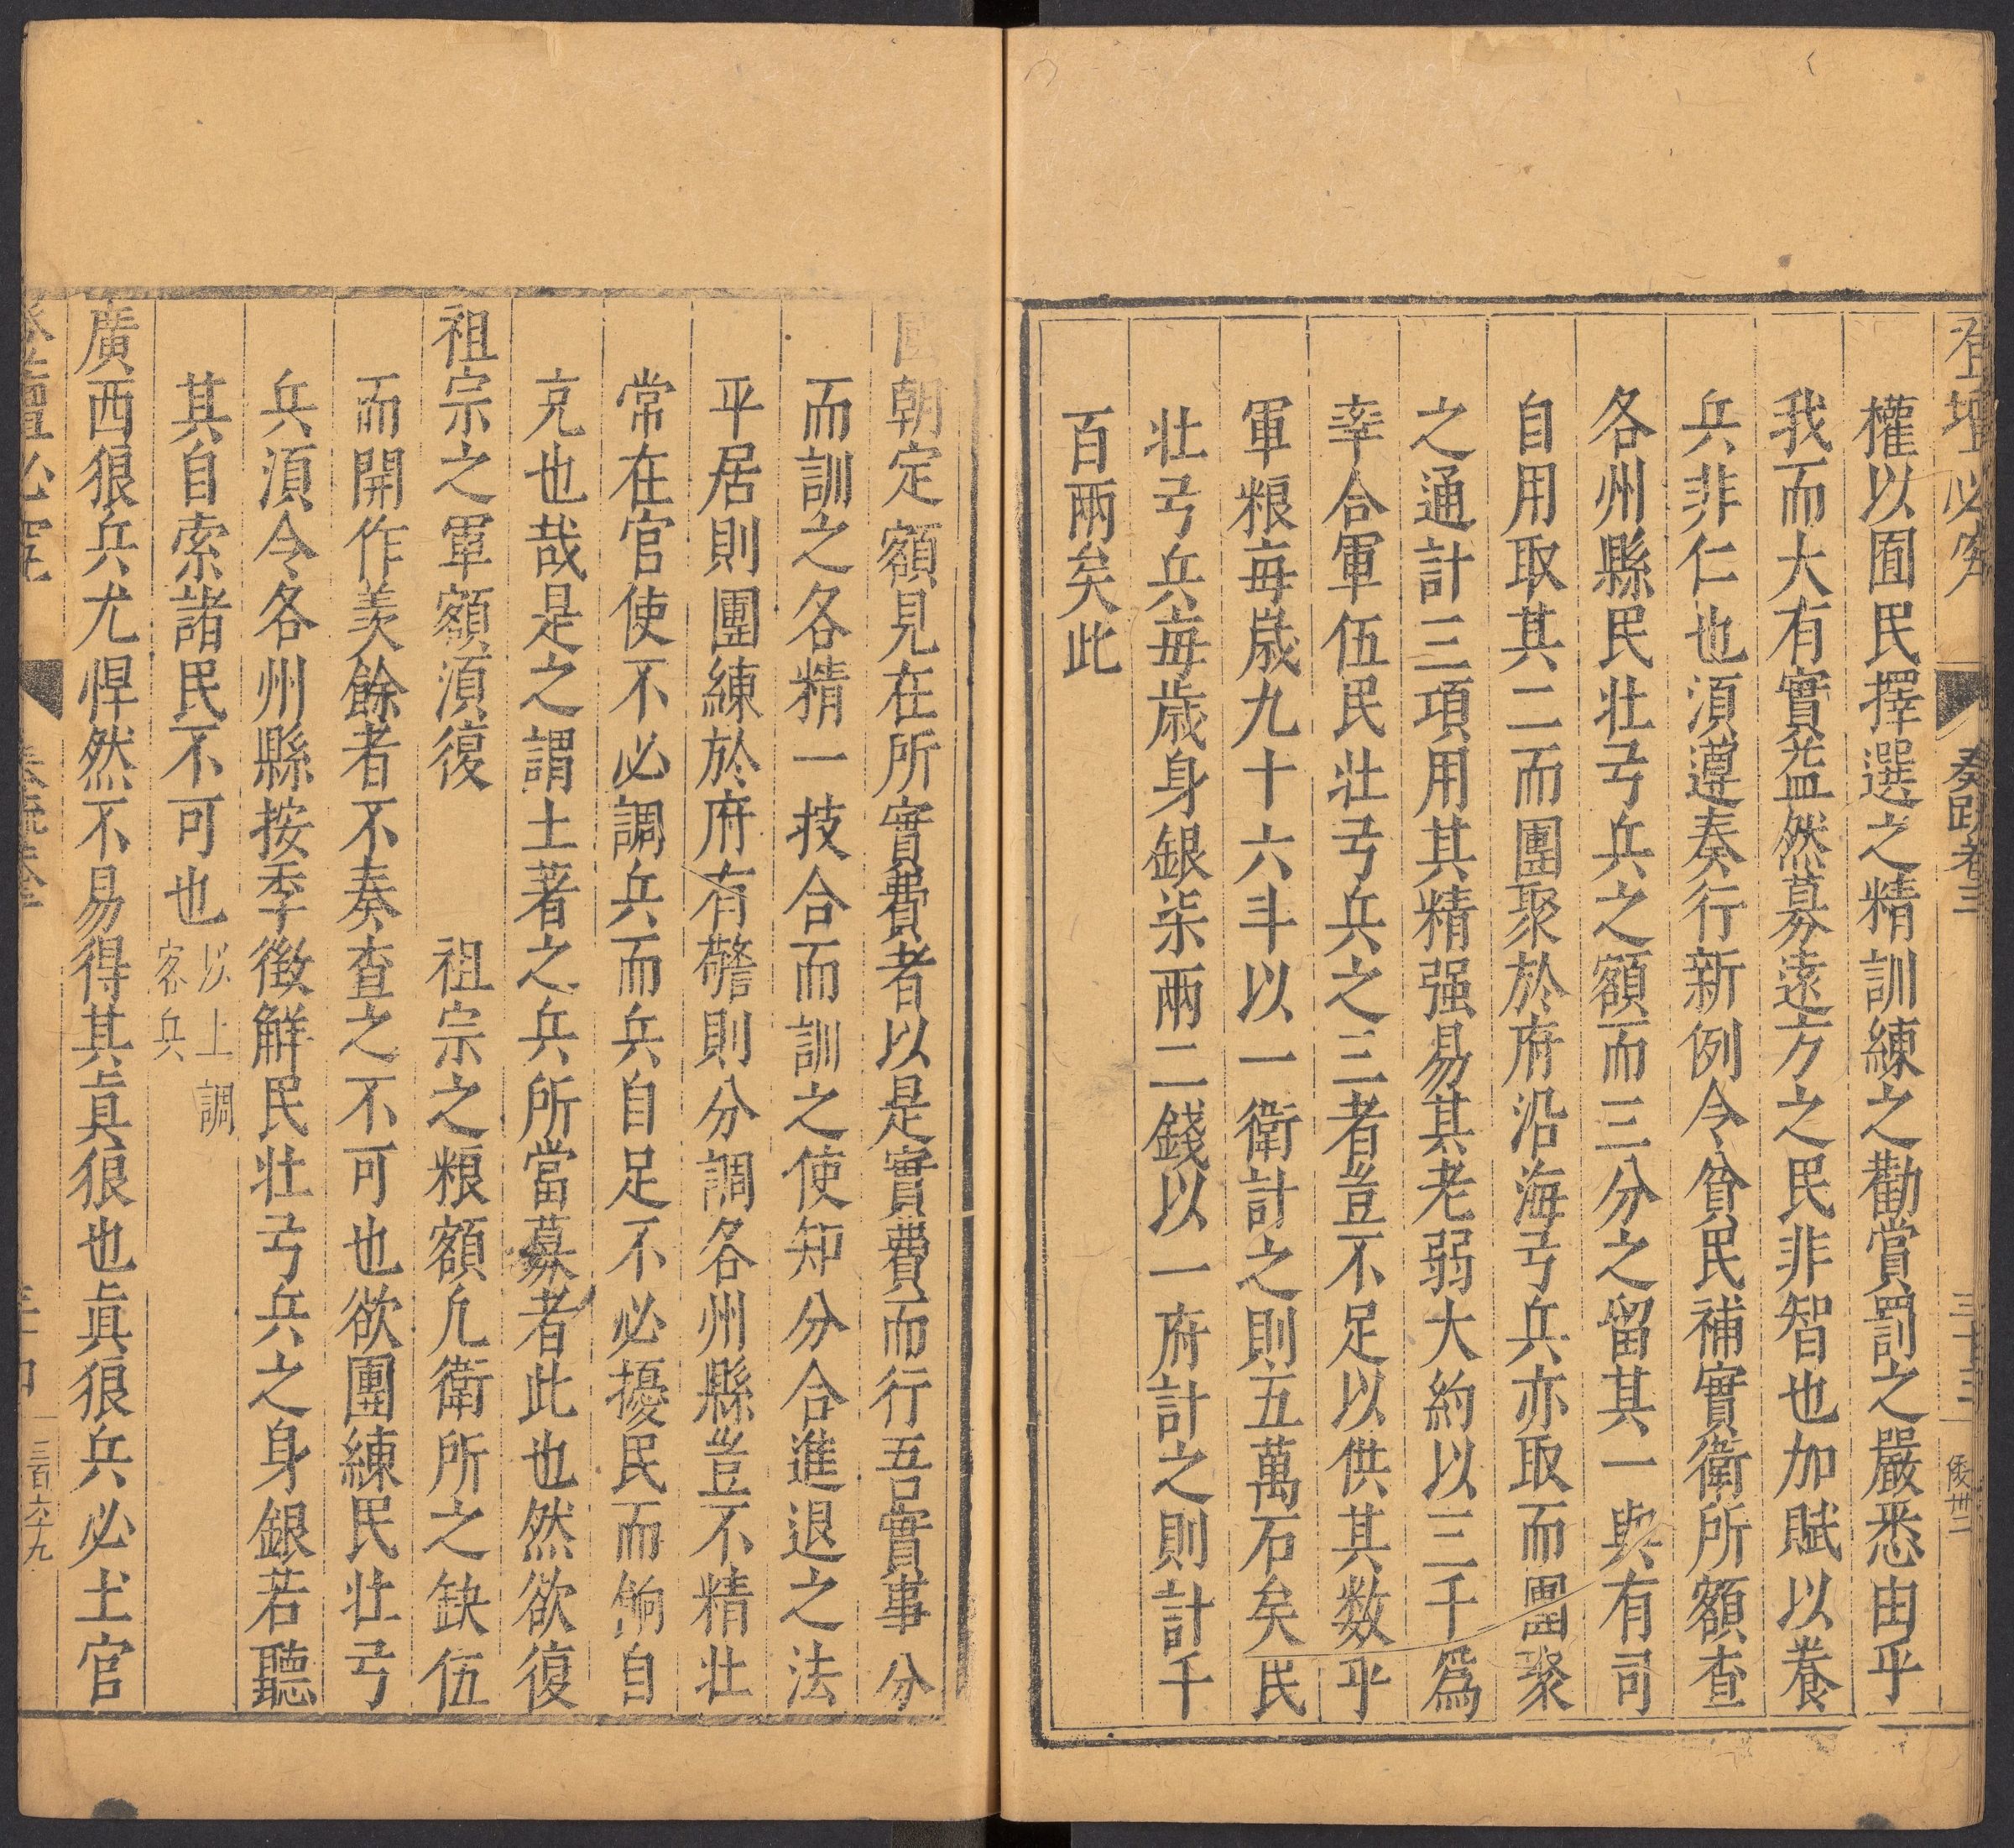 登壇必究 奏疏卷三 三十三 倭卅二
權以囿民擇選之精訓練之勸賞罰之嚴悉由乎
我而大有實益然募遠方之民非智也加賦以養
兵非仁也湏遵奏行新例令貧民補實衛所額查
各州縣民壮弓兵之額而三分之留其一與有司
自用取其二而團聚於府沿海弓兵亦取而團聚
之通計三項用其精强易其老弱大約以三千爲
率合軍伍民壮弓兵之三者豈不足以供其数乎
軍粮毎歲九十六斗以一衛計之則五萬石矣民
壮弓兵毎歲身銀柒兩二錢以一府計之則計千
百兩矣此
國朝定額見在所實費者以是實費而行吾實事分
而訓之各精一技合而訓之使知分合進退之法
平居則團練於府有警則分調各州縣豈不精壮
常在官使不必調兵而兵自足不必擾民而餉自
充也哉是之謂土著之兵所當募者此也然欲復
祖宗之軍額湏復 祖宗之粮額凢衛所之缺伍
而開作羡餘者不奏查之不可也欲團練民壮弓
兵湏令各州縣按季徴觧民壮弓兵之身銀若聽
其自索諸民不可也 以上調
客兵
廣西狼兵尤悍然不易得其眞狼也眞狼兵必土官
登壇必究 奏疏卷三 三十四 一三百六十九